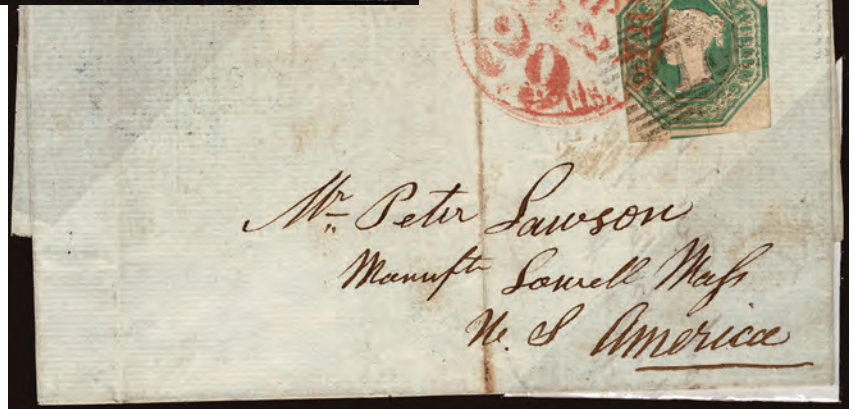 Mr Peter Lawson
Manuftr Lowell Mass
U. S America